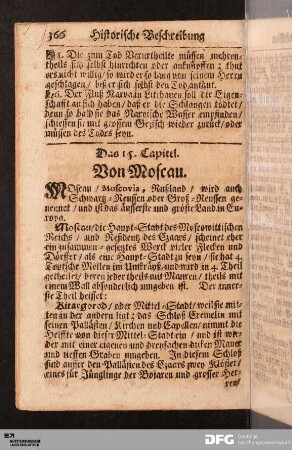 366 Historische Beschreibung
§5. Die zum Tod Verurtheilte müssen mehren-
theils sich selbst hinrichten oder anknüpffen; thut
ers nicht willig/ so wird er so lang von seinem Herrn
geschlagen/ biß er sich selbst den Tod anthut.
§6. Der Fluß Marva in Lithauen soll die Eigen-
schafft an sich haben/ daß er die Schlangen tödtet/
denn so bald sie das Marvische Wasser empfinden/
schiessen sie mit grossem Gezisch wieder zurück/ oder
müssen des Todes seyn.
Das 15. Capitel.
Von Moscau.
MOscau/ Moscovia, Rußland/ wird auch
Schwartz-Reussen oder Groß-Reussen ge-
nennet/ und ist das äusserste und gröste Land in Eu-
ropa.
Moscau/ die Haupt-Stadt des Moscowitischen
Reichs/ und Residentz des Czaars/ scheinet eher
ein zusammen-gesetztes Werck vieler Flecken und
Dörffer/ als eine Haupt-Stadt zu seyn/ sie hat 4.
Teutsche Meilen im Umkraiß/ und wird in 4. Theil
getheilet/ deren jeder theils mit Mauren/ theils mit
einem Wall absonderlich umgeben ist. Der inner-
ste Theil heisset:
Kitaygorod/ oder Mittel-Stadt/ weil sie mit-
ten an der andern ligt; das Schloß Cremelin mit
seinen Pallästen/ Kirchen und Capellen/ nimmt die
Helffte von dieser Mittel-Stadt ein/ und ist wie-
der mit einer eigenen und dreyfachen dicken Mauer
und tieffen Graben umgeben. In diesem Schloß
sind ausser den Pallästen des Czaars zwey Klöster/
eines für Jünglinge der Bojaren und grosser Her-
ren/
DFG Deutsche
Forschungsgemeinschaft